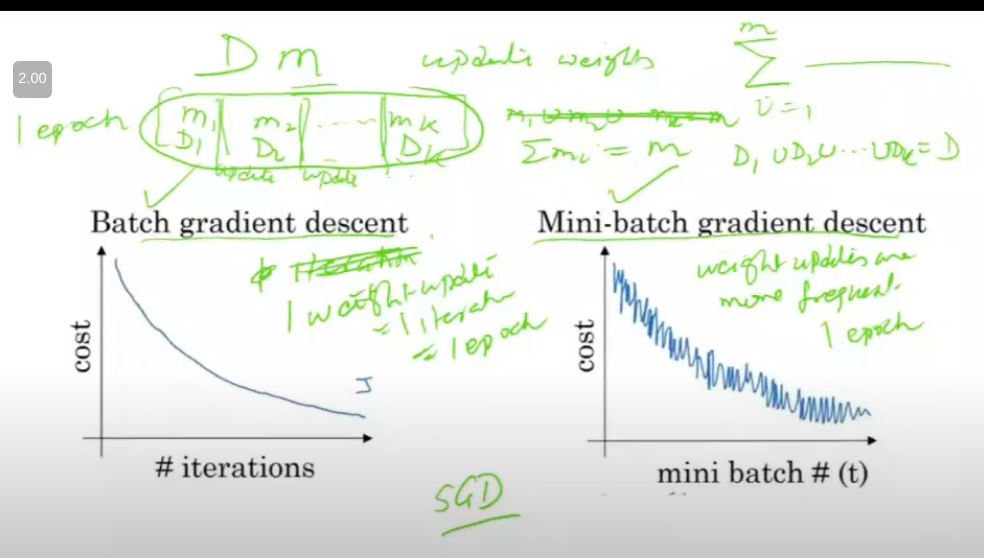 2.00
D m update weights m
∑
i=1
1 epoch m1 m2 ..... mk
D1 D2 Dk
update update
∑mi = m D1 ∪ D2 ∪ ... ∪ Dk = D
Batch gradient descent
cost
1 weight update
= 1 iteratn
= 1 epoch
J
# iterations
Mini-batch gradient descent
weight updates are
more frequent.
1 epoch
cost
mini batch # (t)
SGD